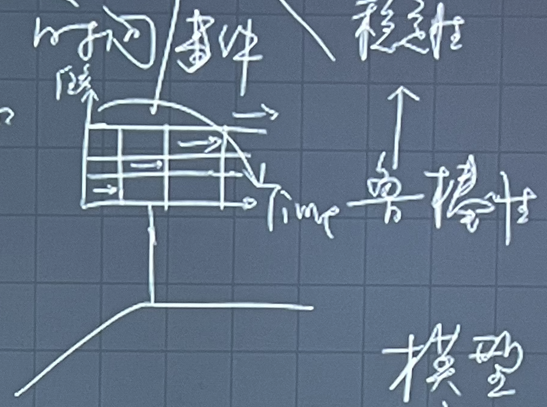 时间 事件
稳定性
Time
鲁棒性
模型